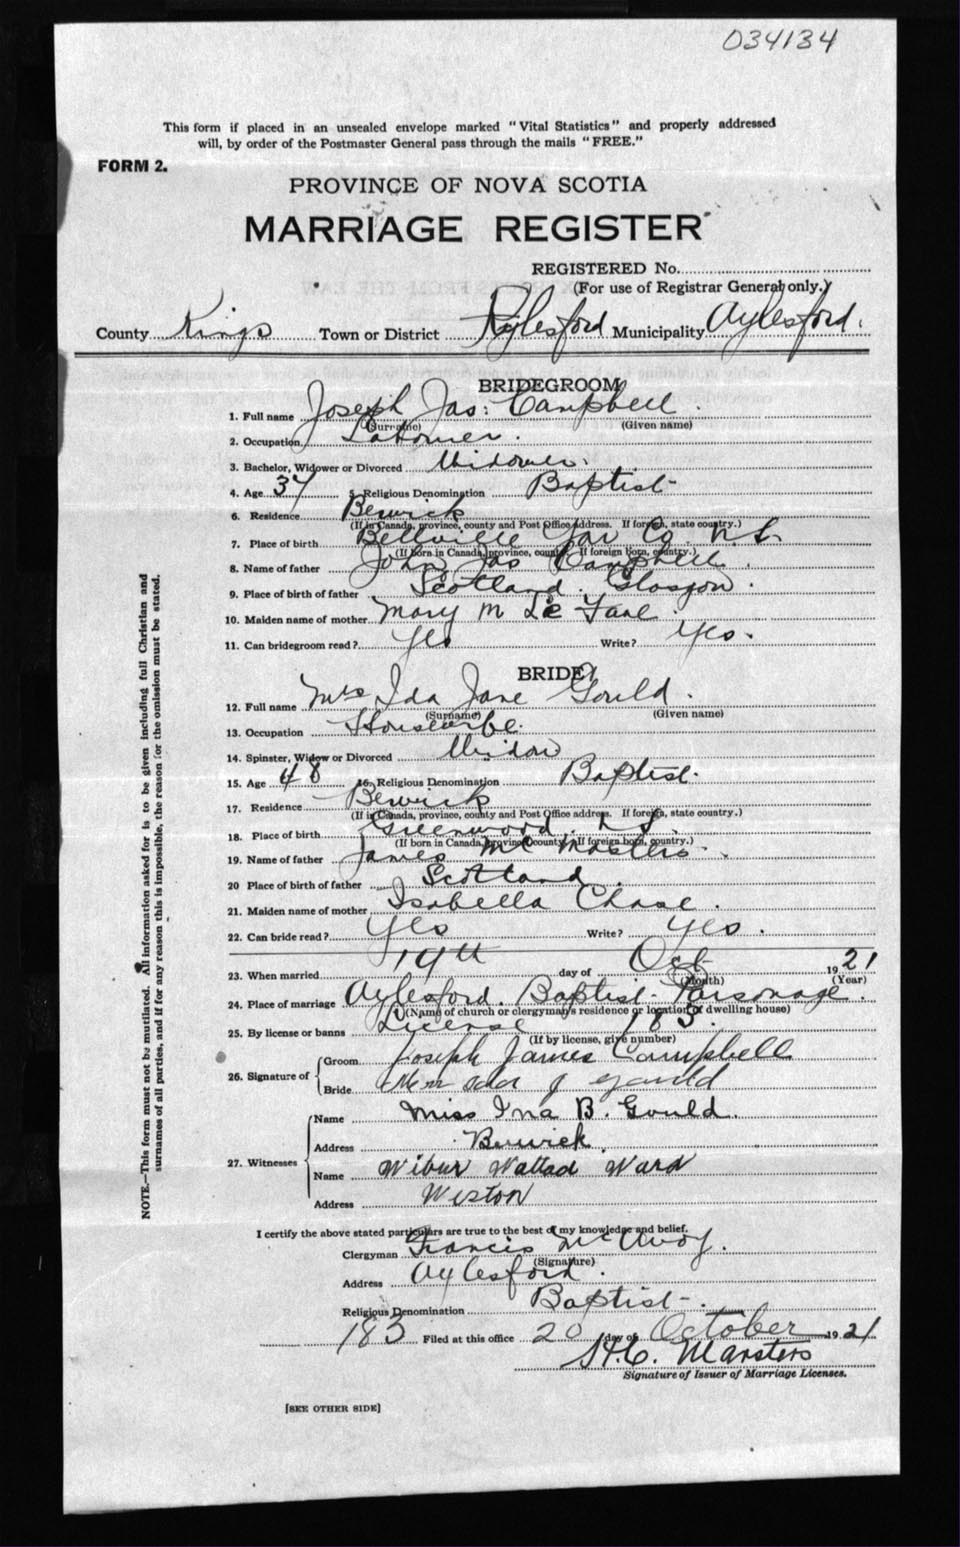 034134
This form if placed in an unsealed envelope marked "Vital Statistics" and properly addressed
will, by order of the Postmaster General pass through the mails "FREE."
FORM 2.
PROVINCE OF NOVA SCOTIA
MARRIAGE REGISTER
REGISTERED No.
(For use of Registrar General only.)
County Kings Town or District Aylesford Municipality Aylesford.
BRIDEGROOM
1. Full name Joseph Jas: Campbell.
(Surname) (Given name)
2. Occupation Laborer.
3. Bachelor, Widower or Divorced Widower.
4. Age 37 5. Religious Denomination Baptist
6. Residence Berwick
(If in Canada, province, county and Post Office address. If foreign, state country.)
7. Place of birth Bellville Yar Co. N.S.
(If born in Canada, province, county. If foreign born, country.)
8. Name of father John Jas Campbell.
9. Place of birth of father Scotland Glasgow.
10. Maiden name of mother Mary M
11. Can bridegroom read? Yes Write? Yes.
BRIDE
12. Full name Mrs Ida Jane Gould.
(Surname) (Given name)
13. Occupation Housewife.
14. Spinster, Widow or Divorced Widow
15. Age 48 16. Religious Denomination Baptist.
17. Residence Berwick
(If in Canada, province, county and Post Office address. If foreign, state country.)
18. Place of birth Greenwood. N.S.
(If born in Canada, province, county. If foreign born, country.)
19. Name of father James McMasters.
20 Place of birth of father Scotland.
21. Maiden name of mother Isabella Chase.
22. Can bride read? Yes Write? Yes.
23. When married 19th day of Oct 1921
(Month) (Year)
24. Place of marriage Aylesford. Baptist Parsonage.
(Name of church or clergyman's residence or location of dwelling house)
25. By license or banns License 183.
(If by license, give number)
26. Signature of
Groom Joseph James Campbell
Bride Ida J Gould
27. Witnesses
Name Miss Ina B. Gould.
Address Berwick.
Name Wibur Wallad Ward
Address Weston
I certify the above stated particulars are true to the best of my knowledge and belief.
Clergyman Francis McAvoy.
(Signature)
Address Aylesford.
Religious Denomination Baptist.
183 Filed at this office 20 day of October 1921
H.C. Marsters
Signature of Issuer of Marriage Licenses.
[SEE OTHER SIDE]
NOTE.—This form must not be mutilated. All information asked for is to be given including full Christian and
surnames of all parties, and if for any reason this is impossible, the reason for the omission must be stated.